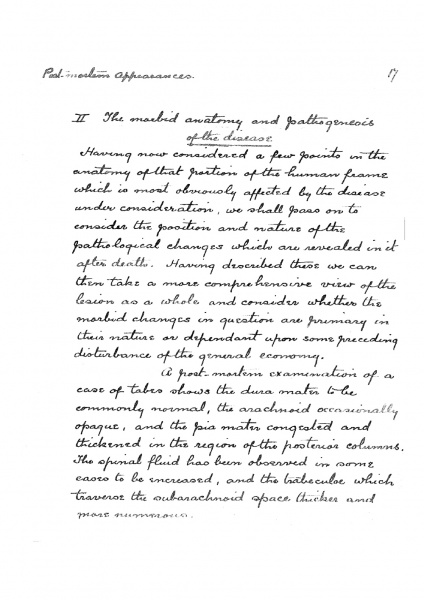 Post-mortem appearances. 17
II The morbid anatomy and pathogenesis
of the disease
Having now considered a few points in the
anatomy of that portion of the human frame
which is most obviously affected by the disease
under consideration, we shall pass on to
consider the position and nature of the
pathological changes which are revealed in it
after death. Having described these we can
then take a more comprehensive view of the
lesion as a whole and consider whether the
morbid changes in question are primary in
their nature or dependant upon some preceding
disturbance of the general economy.
A post-mortem examination of a
case of tabes shows the dura mater to be
commonly normal, the arachnoid occasionally
opaque, and the pia mater congested and
thickened in the region of the posterior columns.
The spinal fluid has been observed in some
cases to be increased, and the trabeculae which
traverse the subarachnoid space thicker and
more numerous.